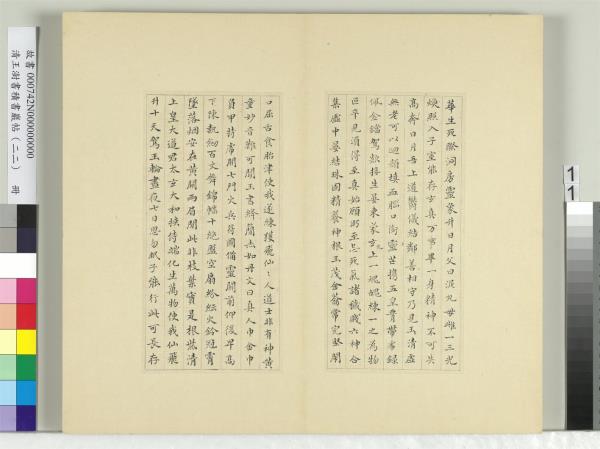 華生死際洞房靈象升日月父曰泥丸母雌一三光
煥照入子室能存玄真萬事畢一身精神不可失
高奔日月吾上道鬱儀結鄰善相守乃見玉清虛
無老可以迴顏填血腦口銜靈芒攜五皇帶虎錄
佩金鐺駕欻接生宴東蒙玄上一魂魄煉一之為物
叵卒見須得至真始顧眄至忌死氣諸穢賤六神合
集虛中宴結珠固精養神根玉茂金籥常完堅閉
口屈舌食胎津使我遂鍊獲飛仙々人道士非有神黃
童妙音難可聞玉書絳簡赤如丹文曰真人巾金巾
負甲持符開七門火兵符圖備靈關前仰後卑高
下陳執劒百丈舞錦幡十絕盤空扇紛紜火鈴冠霄
墜落烟安在黃闕兩眉間此非枝葉實是根紫清
上皇大道君太玄大和挾侍端化生萬物使我仙飛
升十天駕玉輪晝夜七日思勿眠子能行此可長存
故書 000742N000000000
清王澍書積書巖帖（二二） 冊